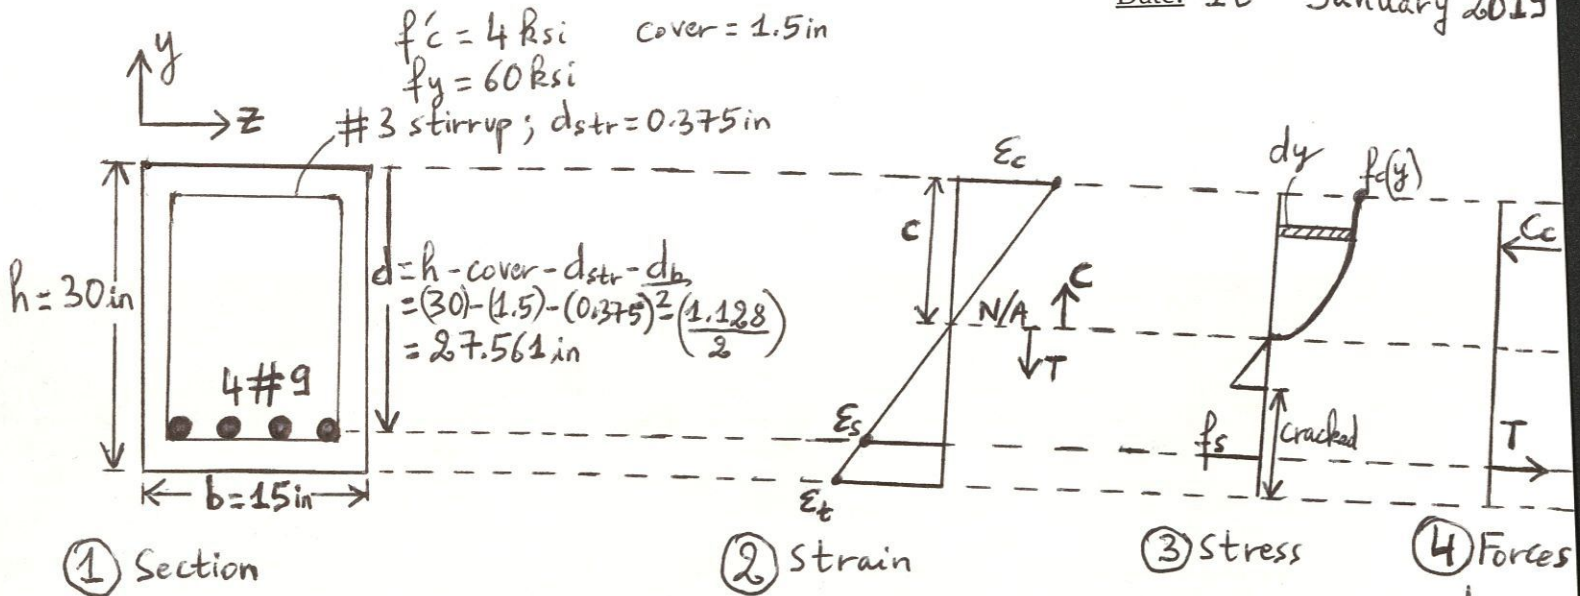 January 2019
f'c = 4 ksi cover = 1.5 in
fy = 60 ksi
#3 stirrup ; dstr = 0.375 in
y
z
h = 30 in
d = h - cover - dstr - db/2
= (30) - (1.5) - (0.375) - (1.128/2)
= 27.561 in
4 #9
b = 15 in
① Section
εc
c
N/A
C
T
εs
εt
② Strain
dy
fc(y)
fs
cracked
③ Stress
Cc
T
④ Forces